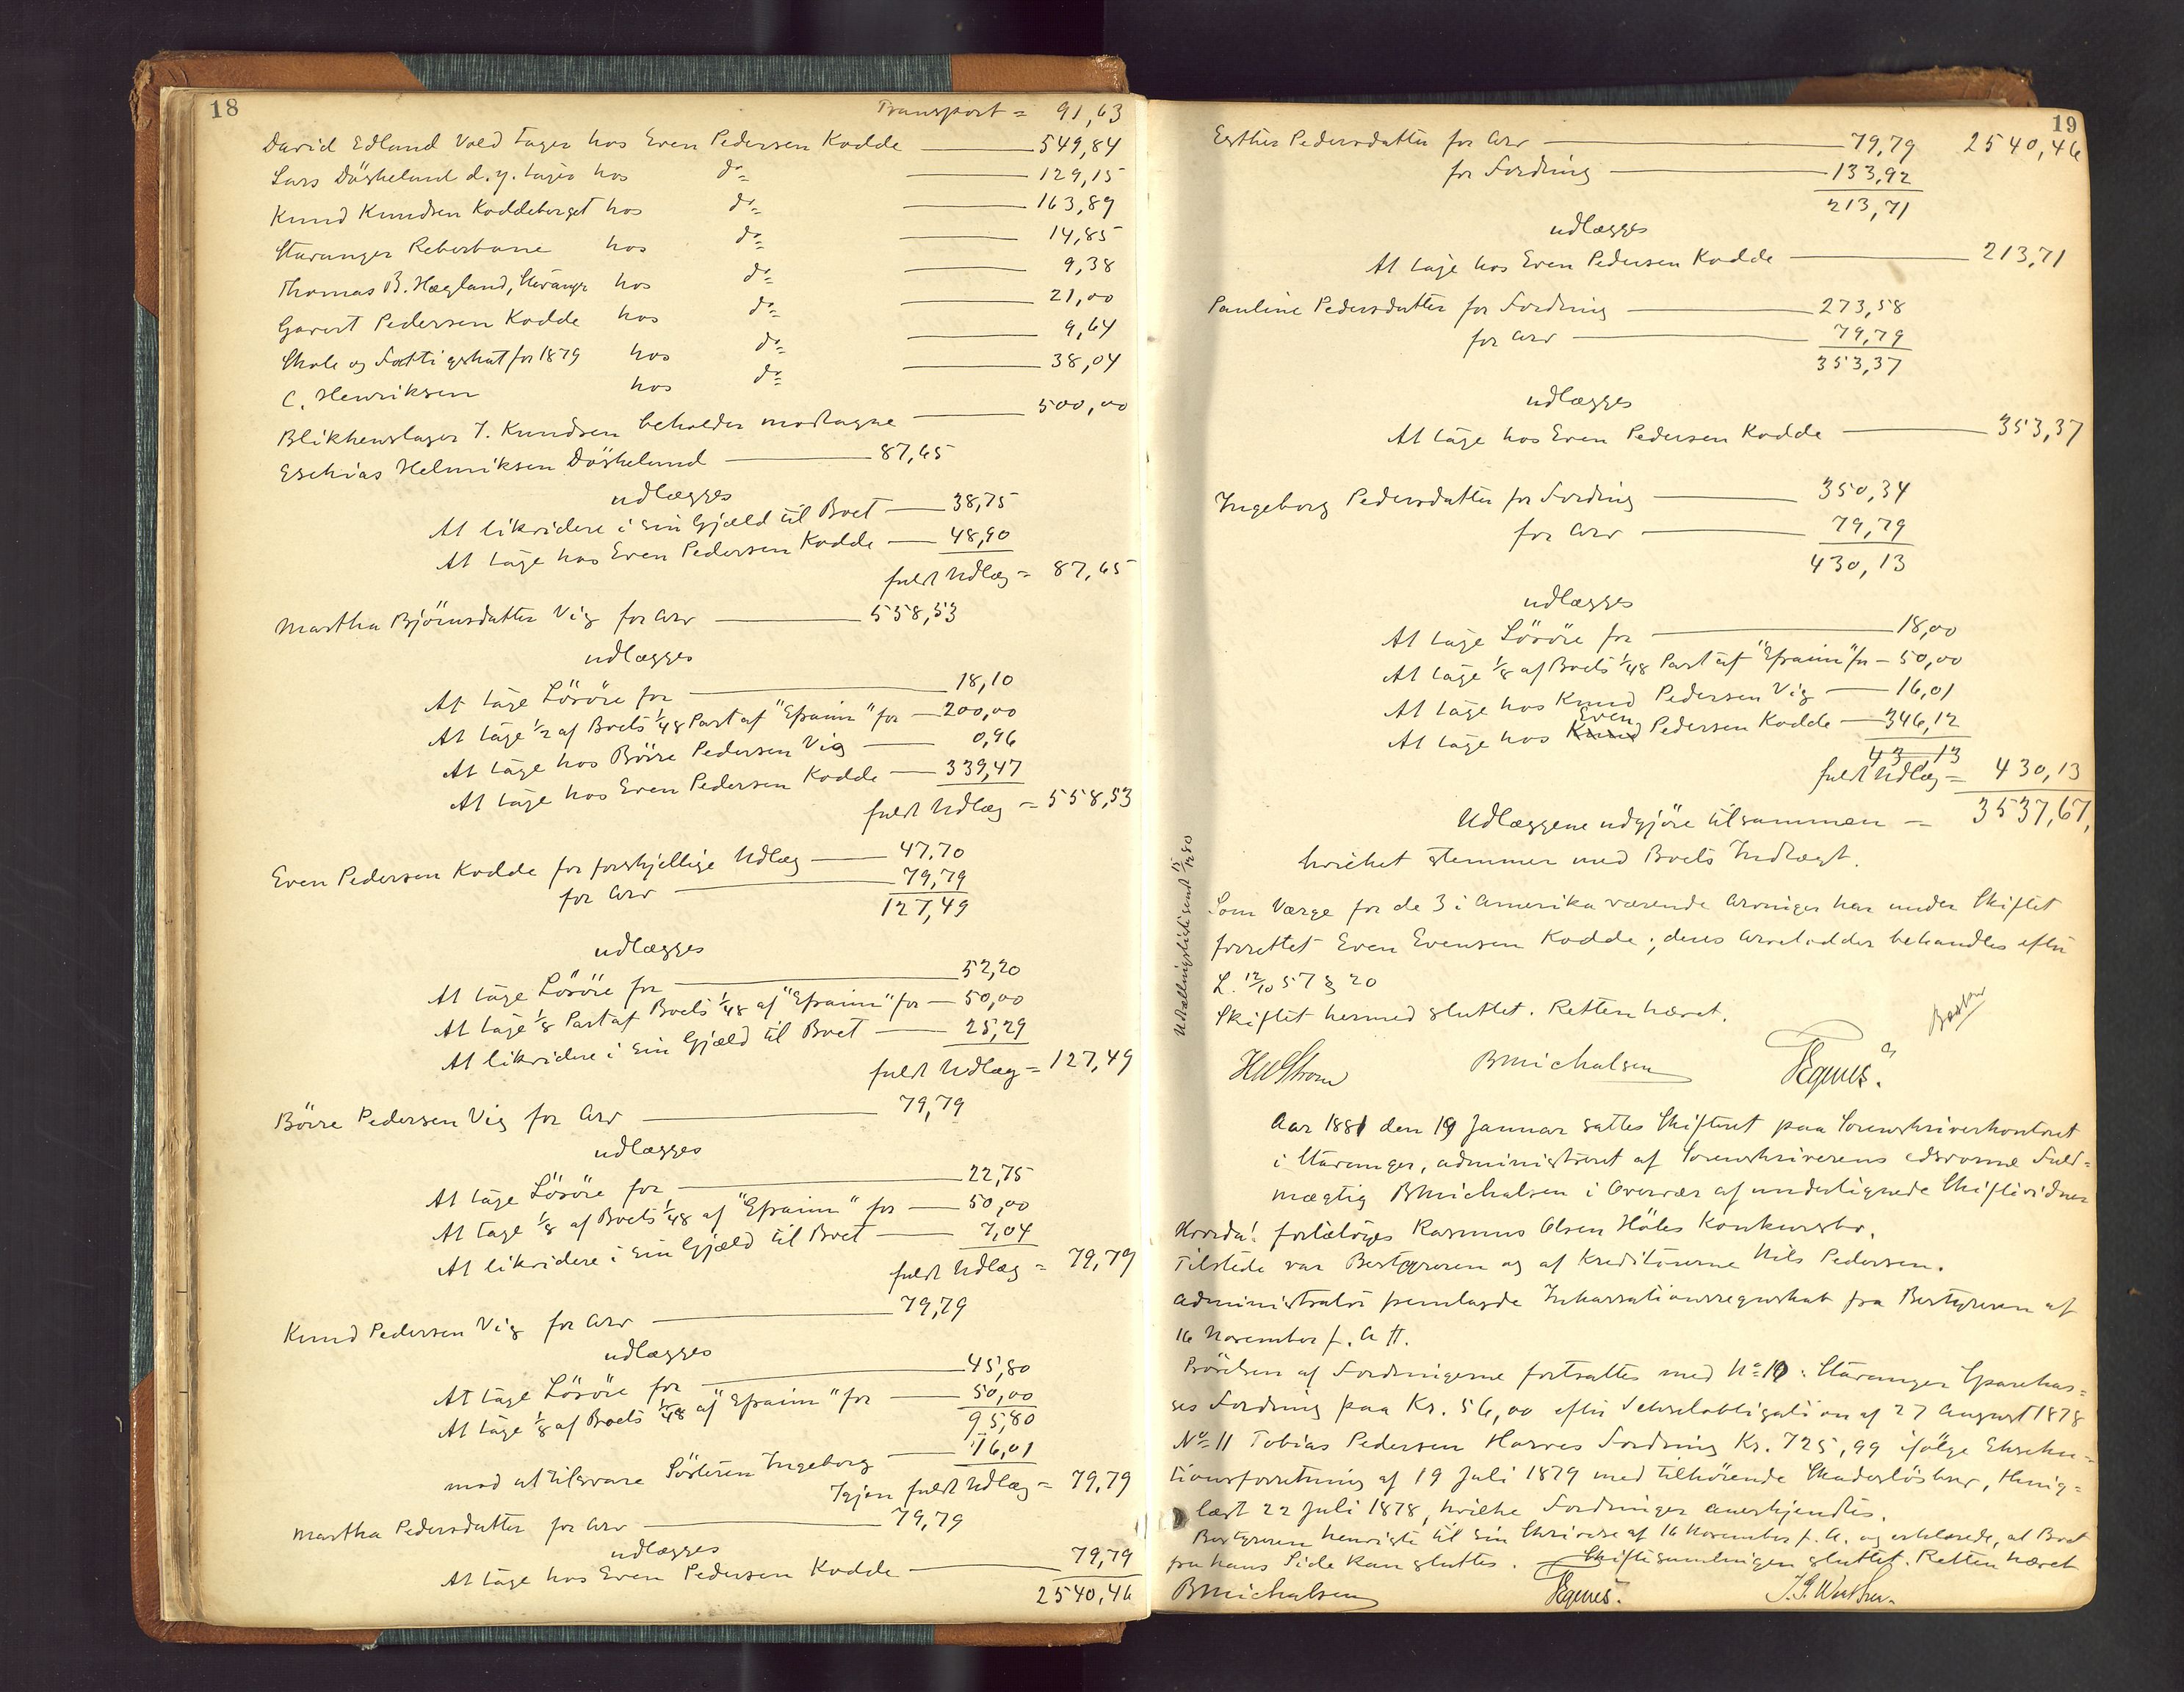 18
Transport = 91,63
David Edland Vold tager hos Even Pedersen Kodde 549,84
Lars Döskeland d. y. tager hos do= 129,15
Knud Knudsen Koddeberget hos do= 163,89
Stavanger Reberbane hos do= 14,85
Thomas B. Hægland, Stavanger hos do= 9,38
Gavert Pedersen Kodde hos do= 21,00
Skole og Fattigskat for 1879 hos do= 9,64
C. Henriksen hos do= 38,04
Blikkenslager J. Knudsen beholder modtagne 500,00
Esekias Helmiksen Döskeland 87,65
udlægges
At likvidere i sin Gjæld til Boet 38,75
At tage hos Even Pedersen Kodde 48,90
fuldt Udlæg = 87,65
Martha Bjömsdatter Vig for Arv 558,53
udlægges
At tage Lösöre for 18,10
At tage 1/2 af Boets 1/48 Part af "Efraim" for 200,00
At tage hos Börre Pedersen Vig 0,96
At tage hos Even Pedersen Kodde 339,47
fuldt Udlæg = 558,53
Even Pedersen Kodde for forskjellige Udlæg 47.70
for Arv 79,79
127,49
udlægges
At tage Lösöre for 52,20
At tage 1/8 Part af Boets 1/48 af "Efraim" for 50,00
At likvidere i sin Gjæld til Boet 25,29
fuldt Udlæg = 127,49
Börre Pedersen Vig for Arv 79,79
udlægges
At tage Lösöre for 22,75
At tage 1/8 af Boets 1/48 af "Efraim" for 50,00
At likvidere i sin Gjæld til Boet 7,04
fuldt Udlæg = 79,79
Knud Pedersen Vig for Arv 79,79
udlægges
At tage Lösöre for 45,80
At tage 1/8 af Boets 1/48 af "Efraim" for 50,00
95,80
mod at tilsvare Söstren Ingeborg 16,01
Igjen fuldt Udlæg = 79,79
Martha Pedersdatter for Arv 79,79
udlægges
At tage hos Even Pedersen Kodde 79,79
2540,46
19
Esther Pedersdatter for Arv 79,79 2540,46
for Fordring 133,92
213,71
udlægges
At tage hos Even Pedersen Kodde 213,71
Pauline Pedersdatter for Fordring 273,58
for Arv 79,79
353,37
udlægges
At tage hos Even Pedersen Kodde 353,37
Ingeborg Pedersdatter for Fordring 350,34
for Arv 79,79
430,13
udlægges
At tage Lösöre for 18,00
At tage 1/8 af Boets 1/48 Part af "Efraim" for 50,00
At tage hos Knud Pedersen Vig 16,01
Even
At tage hos Knud Pedersen Kodde 346,12
43 13
fuldt Udlæg = 430,13
Udlæggene udgjöre tilsammen = 3537,67,
hvilket stemmer med Boets Indtægt.
Som Værge for de 3 i Amerika værende Arvinger har under Skiftet
forrettet Even Evensen Kodde; deres Arvelodder behandles efter
L. 12/10 57 § 20
Skiftet hermed sluttet. Retten hævet.
HWStrom BMichalsen
Udtællingslist sendt 15/1280
Aar 1881 den 19 Januar sattes Skifteret paa Sorenskriverkontoret
i Stavanger, administreret af Sorenskriverens edsvorne Fuld=
mægtig BMichalsen i Overvær af undertegnede Skiftevidner
Hvorda! foretoges Rasmus Olsen Höles Konkursbo.
Tilstede var Bestyreren og af Kreditorerne Nils Pedersen.
Administrator fremlagde Inkassationsregnskab fra Bestyreren af
16 November f. A #.
Prövelsen af Fordringerne fortsattes med No 10: Stavanger Sparekas=
ses Fordring paa Kr. 56,00 efter Vekselobligation af 27 August 1878
No 11 Tobias Pedersen Harves Fordring Kr. 725,99 ifölge Ekseku=
tionsforretning af 19 Juli 1879 med tilhörende Skadeslösbrev, thing=
læst 22 Juli 1878, hvilke Fordringer anerkjendtes.
Bestyreren henviste til sin Skrivelse af 16 November f. A. og erklærede, at Boet
fra hans Side kan sluttes. Skiftesamlingen sluttet. Retten hævet
BMichalsen